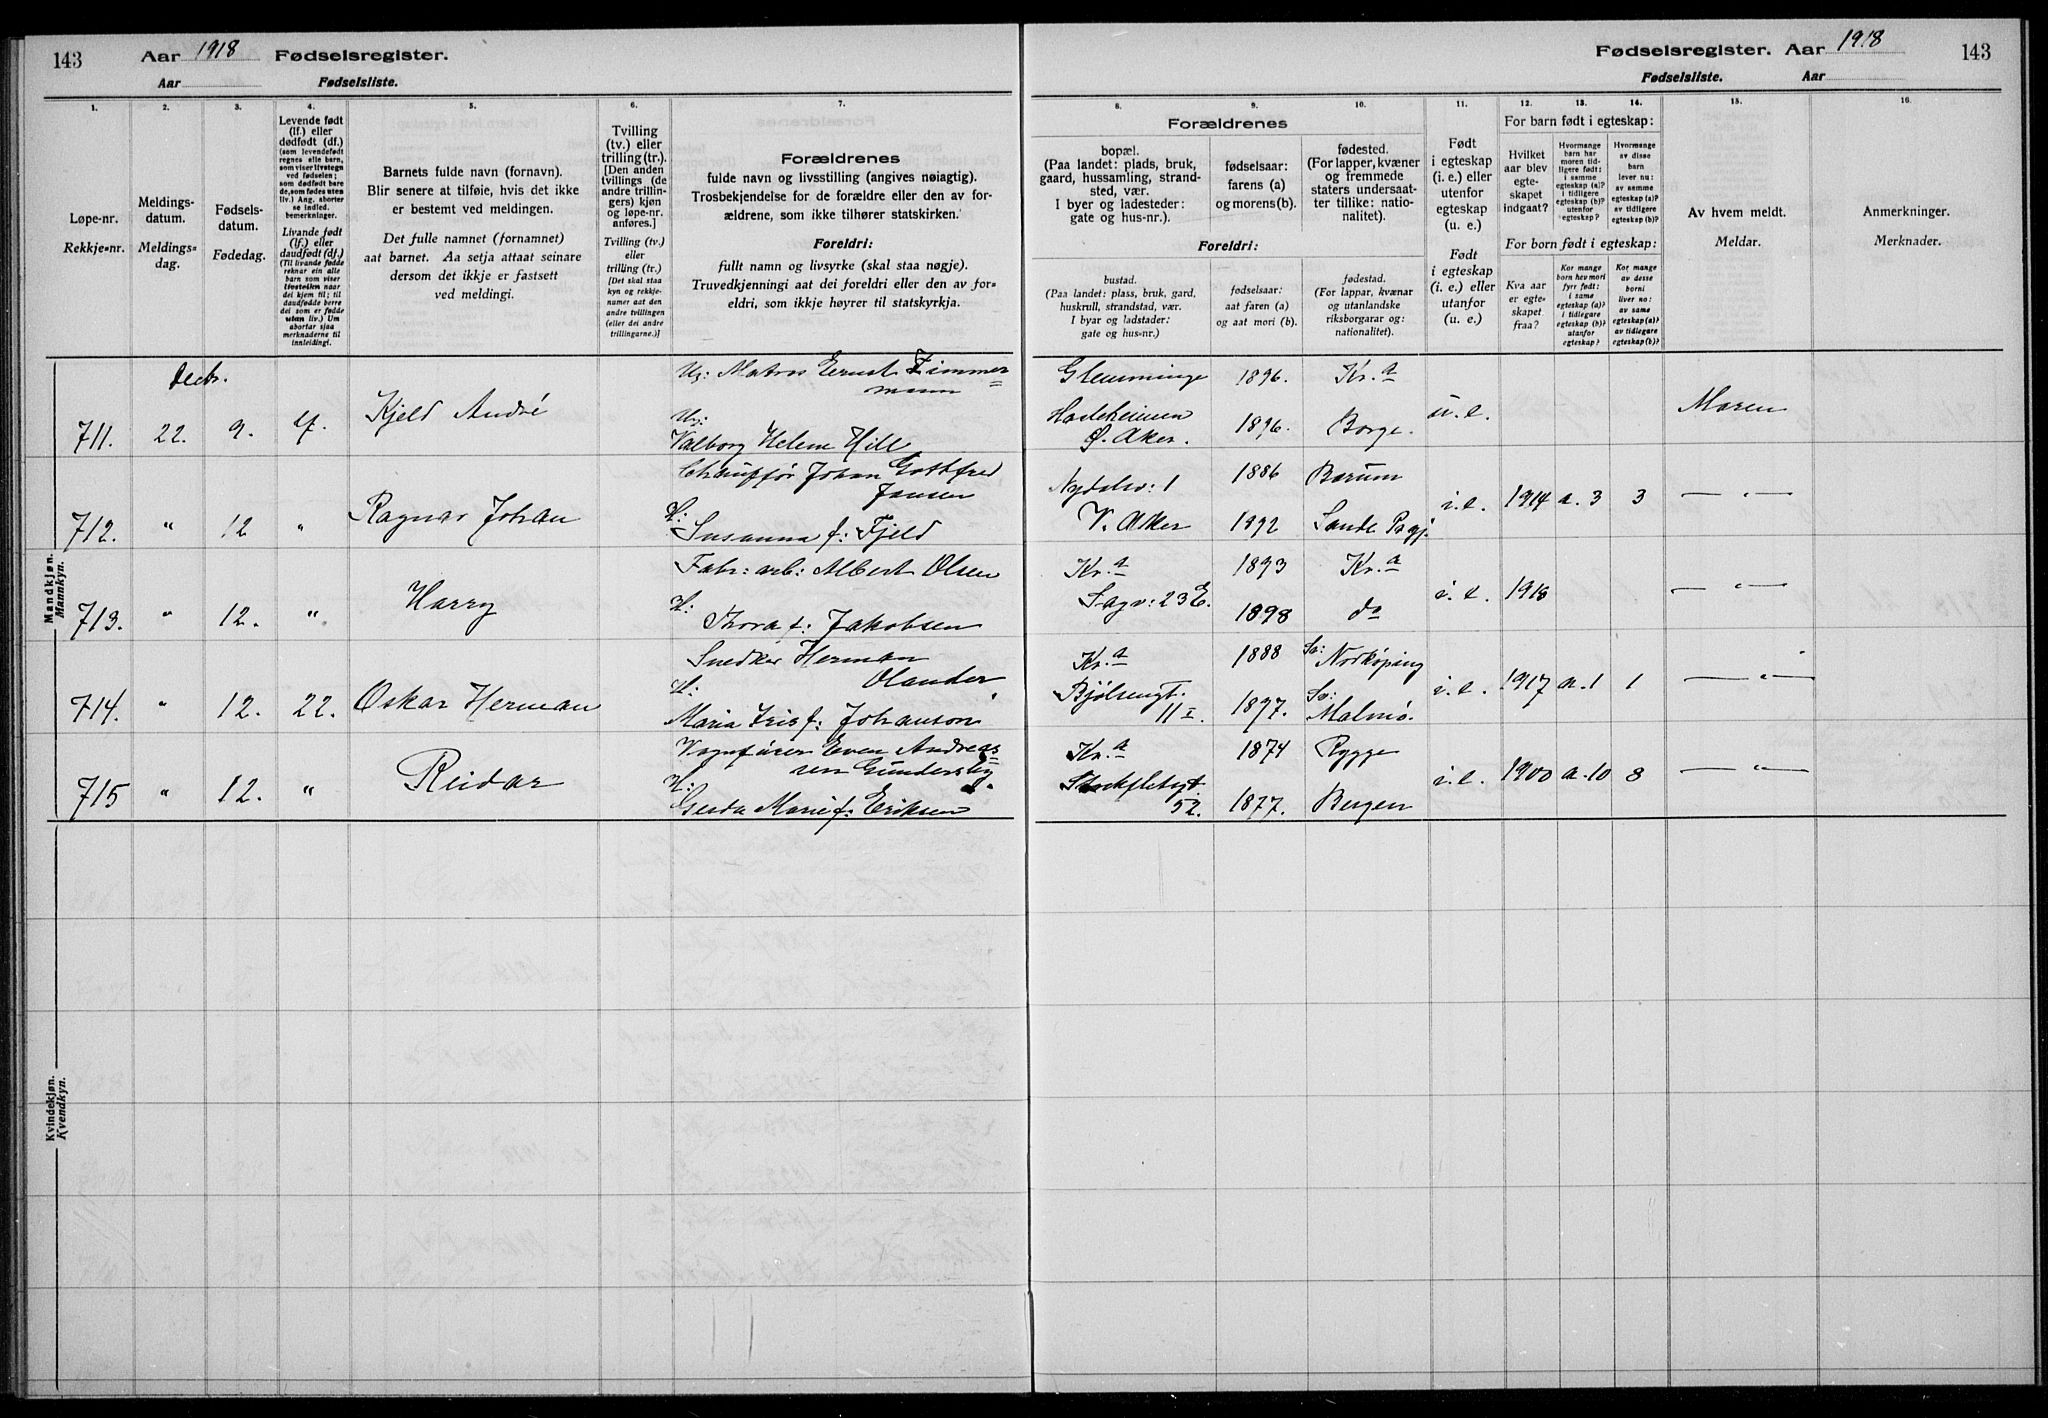 143
Aar 1918 Fødselsregister.
Aar Fødselsliste.
1.
2.
3.
4.
5.
6.
7.
Løpe-nr.
Rekkje-nr.
Meldings-
datum.
Meldings-
dag.
Fødsels-
datum.
Fødedag.
Levende født
(lf.) eller
dødfødt (df.)
Livande født
(lf.) eller
daudfødt (df.)
Barnets fulde navn (fornavn).
Blir senere at tilføie, hvis det ikke
er bestemt ved meldingen.
Det fulle namnet (fornamnet)
aat barnet. Aa setja attaat seinare
dersom det ikkje er fastsett
ved meldingi.
Tvilling
(tv.) eller
trilling (tr.).
[Den anden
tvillings (de
andre trillin-
gers) kjøn
og løpe-nr.
anføres.]
Tvilling (tv.)
eller
trilling (tr.)
[Det skal staa
kyn og rekkje-
numer aat den
andre tvillingen
(eller dei andre
trillingarne.)]
Forældrenes
fulde navn og livsstilling (angives nøiagtig).
Trosbekjendelse for de forældre eller den av for-
ældrene, som ikke tilhører statskirken.
Foreldri:
fullt namn og livsyrke (skal staa nøgje).
Truvedkjenningi aat dei foreldri eller den av for-
eldri, som ikkje høyrer til statskyrkja.
Mandkjøn.
Mannkyn.
Kvindekjøn.
Kvendkyn.
Decbr.
711. 22. 9. lf. Kjeld André
Ug: Matros Ernst Zimmer=
mann
Ug:
Valborg Helene Hill
712. " 12 " Ragnar Johan
Chauffør Johan Gottfred
Jansen
H:
Susanna f: Fjeld
713. " 12. " Harry
Fabr: arb: Albert Olsen
H:
Thora f: Jakobsen
714. " 12. 22. Oskar Herman
Snedker Herman
Olander
H:
Maria Iris f: Johanson
715 " 12. " Reidar
Vognfører Even Andreas=
sen Gundersby
H:
Gerda Marie f: Eriksen
Fødselsregister. Aar 1918 143
Fødselsliste. Aar
8.
9.
10.
11.
12.
13.
14.
15.
16.
Forældrenes
bopæl.
(Paa landet: plads, bruk,
gaard, hussamling, strand-
sted, vær.
I byer og ladesteder:
gate og hus-nr.).
fødselsaar:
farens (a)
og morens (b).
fødested.
(For lapper, kvæner
og fremmede
staters undersaat-
ter tillike: natio-
nalitet).
Foreldri:
bustad.
(Paa landet: plass, bruk, gard,
huskrull, strandstad, vær.
I byar og ladstader:
gate og hus-nr.)
fødselsaar:
aat faren (a)
og aat mori (b).
fødestad.
(For lappar, kvænar
og utanlandske
riksborgarar og:
nationalitet).
Født
i egteskap
(i. e.) eller
utenfor
egteskap
(u. e.)
Født
i egteskap
(i. e.) eller
utanfor
(u. e.)
For barn født i egteskap:
Hvilket
aar blev
egte-
skapet
indgaat?
Hvormange
barn har
moren tid-
ligere født:
i samme
egteskap (a)?
i tidligere
egteskap (b)?
utenfor
egteskap?
Hvormange
av disse
barn
lever nu:
av samme
egteskap (a)?
av tidligere
egteskap (b)?
For born født i egteskap:
Kva aar
er egte-
skapet
fraa?
Kor mange
born hev mori
fyrr født:
i same
egteskap (a)?
i tidlegare
egteskap (b)?
utanfor
egteskap?
Kor mange
av desse
borni
liver no:
av same
egteskap (a)?
av tidlegare
egteskap (b)?
Av hvem meldt.
Meldar.
Anmerkninger.
Merknader.
Glemminge 1896. Kr.a
Ø. Aker. 1896. Borge. u. e. Moren
Nydalsv: 1 1886 Bærum
V. Aker 1892 Sande Prgj. i. e. 1914 a. 3 3 — " —
Kr.a 1893 Kr.a
Sagv: 23 E. 1898 do i. e. 1918 — " —
Kr.a 1888 Sv: Norköping
Bjølsengt. 11 I. 1897. Sv: Malmø. i. e. 1917 a. 1 1 — " —
Kr.a 1874 Rygge
Stockfletsgt 52. 1877. Bergen i. e. 1900 a. 10 8 — " —